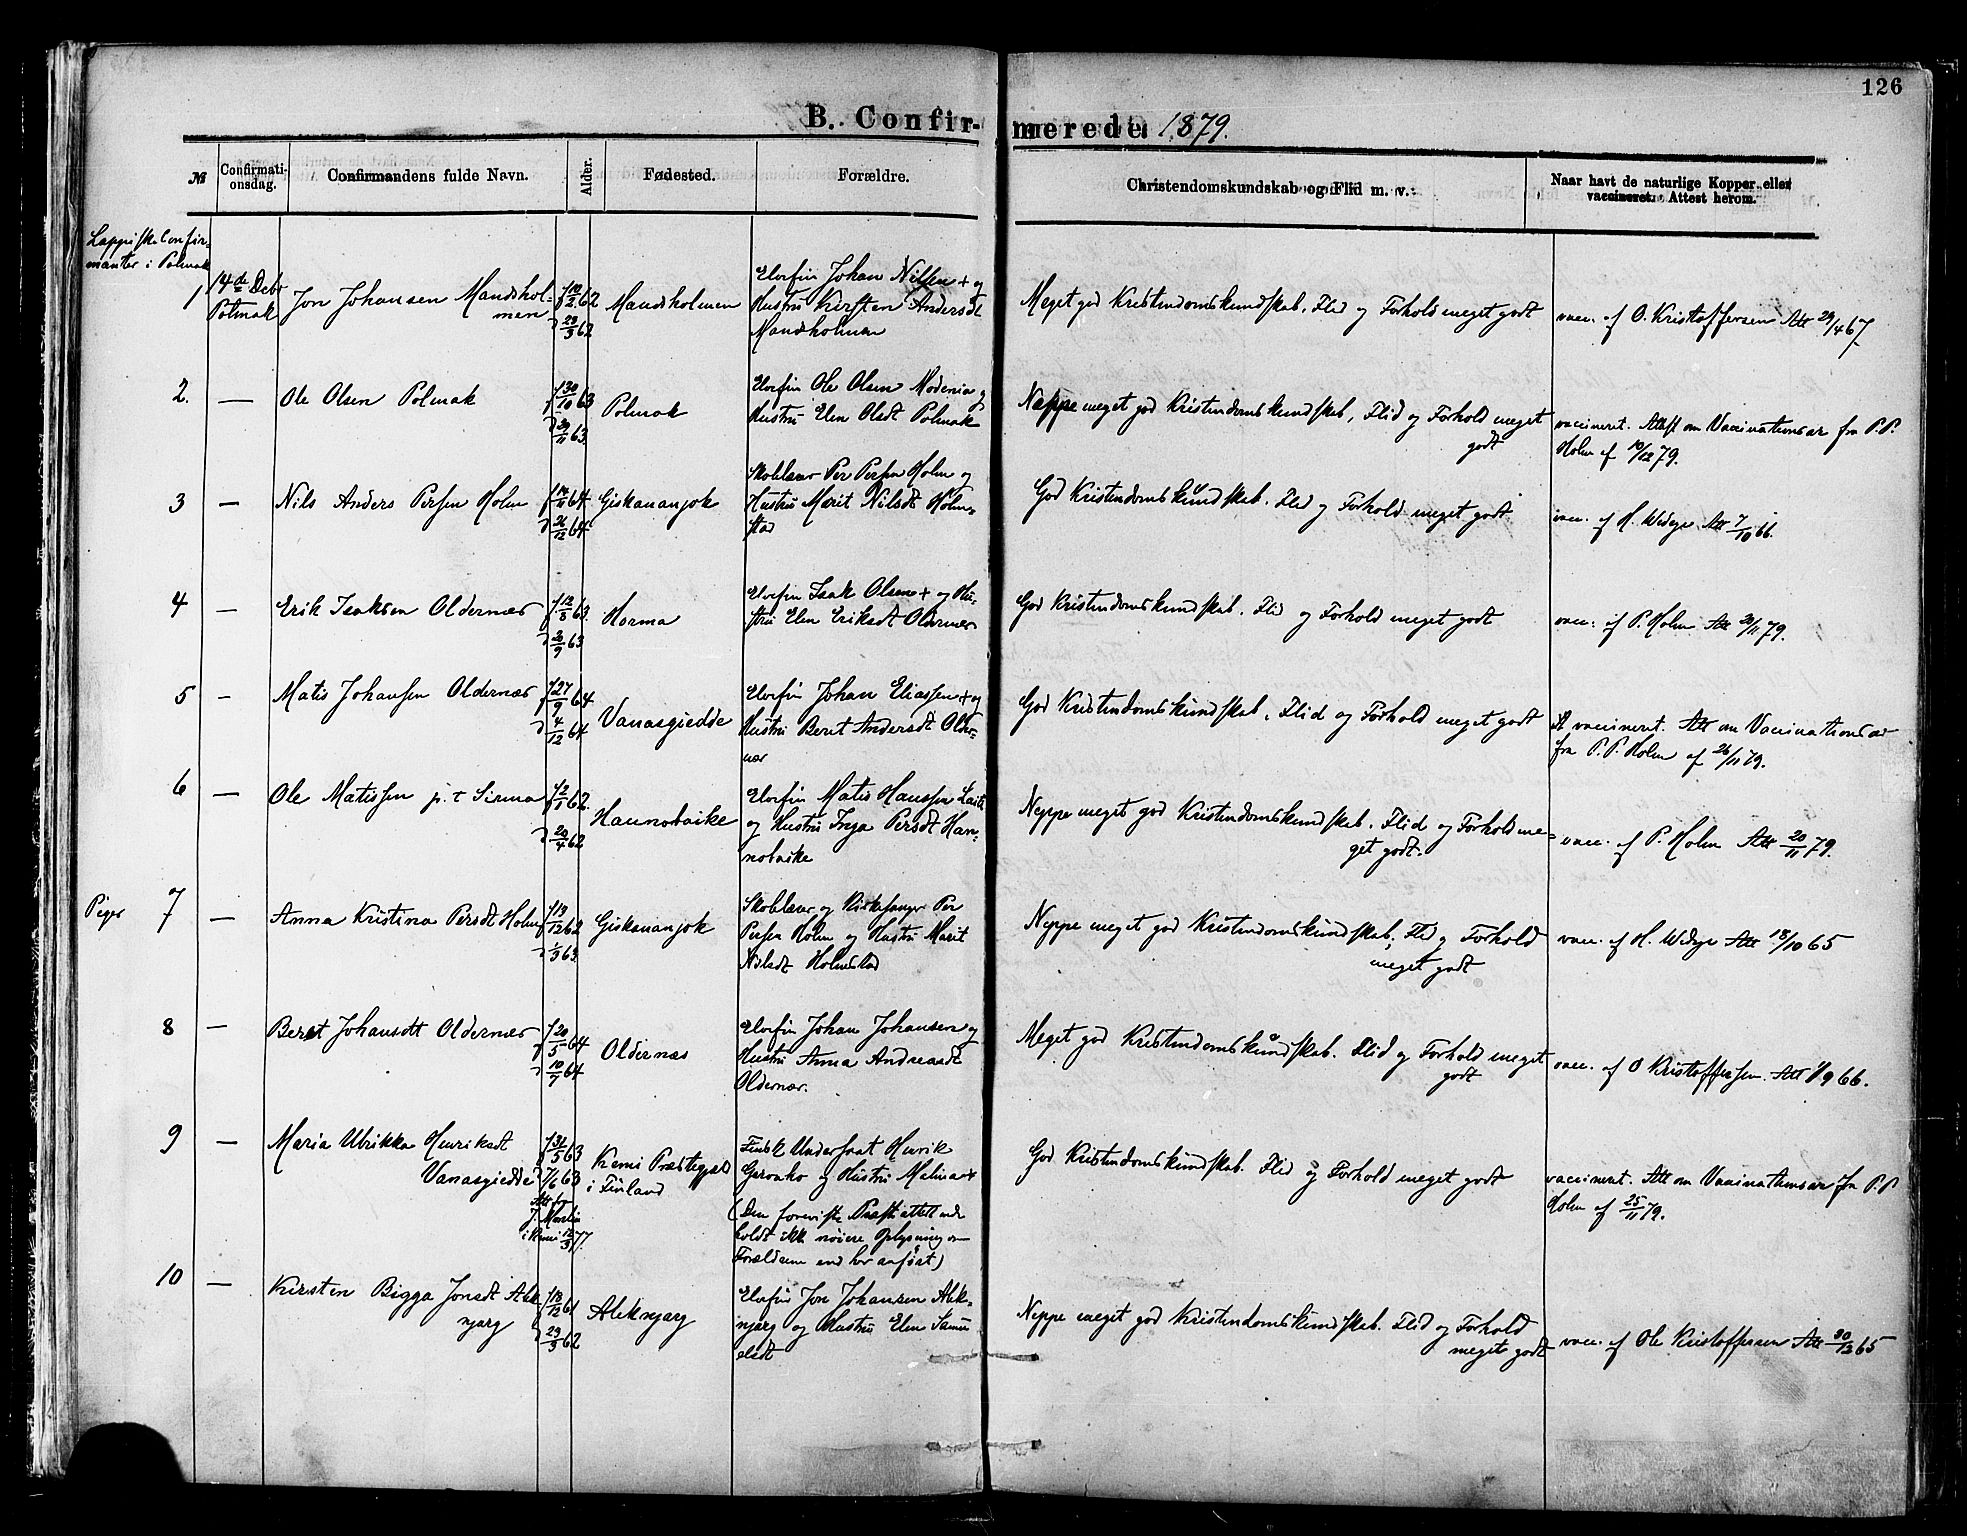 126
B. Confirmerede 1879.
№ Confirmationsdag. Confirmandens fulde Navn. Alder. Fødested. Forældre. Christendomskundskab og Flid m. v. Naar havt de naturlige Kopper eller vaccineret. Attest herom.
Lappiske Confirmanter i Polmak
1 14de Debr Polmak
Jon Johansen Mandsholmen
f 10/2 62
d 23/3 62
Mandsholmen
Elvefin Johan Nilsen + og
Hustru Kirsten Andersdt
Mandsholmen
Meget god Kristendomskundskab. Flid og Forhold meget godt
vacc. af O. Kristoffersen Att 29/4 67.
2. — Ole Olsen Polmak
f 30/10 63
d 29/11 63
Polmak
Elvefin Ole Olsen Modenia og
Hustru Elen Olsdt Polmak
Neppe meget god Kristendomskundskab, Flid og Forhold meget
godt
vaccineret. Attest om Vaccinationsar fra P.P.
Holm af 10/12 79.
3 — Nils Anders Persen Holm
f 14/11 64
d 26/12 64
Giskananjok
Skolelærer Per Persen Holm og
Hustru Marit Nilsdt Holmstad
God Kristendomskundskab. Flid og Forhold meget godt
vacc. af H. Widege Att 7/10 66.
4 — Erik Isaksen Oldernæs
f 12/8 63.
d 20/9 63
Horma
Elvefin Isak Olsen + og Hustru Elen Eriksdt Oldernæs
God Kristendomskundskab. Flid og Forhold meget godt
vacc. af P. Holm Att 20/11 79.
5 — Matis Johansen Oldernæs
f 27/9 64
d 4/12 64
Vanasgiedde
Elvefin Johan Eliassen + og
Hustru Beret Andersdt Oldernær
God Kristendomskundskab. Flid og Forhold meget godt
vaccineret. Att om Vaccinationsar
fra P.P. Holm af 26/11 79.
6 — Ole Matissen p. t Sirma
f 2/1 62.
d 20/4 62
Haunobaike
Elvefin Matis Hanssen
og Hustru Inga Persdt Hannobaike
Neppe meget god Kristendomskundskab. Flid og Forhold meget godt.
vacc. af P. Holm Att 20/11 79.
Piger 7 — Anna Kristina Persdt Holm
f 19/12 62
d 1/3 63
Giskananjok
Skolelærer og Kirkesanger Per
Persen Holm og Hustru Marit
Nilsdt Holmestad
Neppe meget god Kristendomskundskab; Flid og Forhold
meget godt
vacc. af H. Widege Att 18/10 65
8 — Beret Johansdt Oldernæs
f 20/5 64
d 10/7 64
Oldernæs
Elvefin Johan Johansen og
Hustru Anna Andreasdt
Oldernær.
Meget god Kristendomskundskab. Flid og Forhold meget
godt
vacc. af O Kristoffersen. Att 1/9 66.
9 — Maria Ulrikka Henriksdt
Vanasgiedde
f 31/5 63
d 7/6 63
Att fra
J. Martin
i Kemi 12/3 77.
Kemi Præstegjeld
i Finland
Finsk Undersaat Henrik
Garonko og Hustru Malina +
(Den foreviste Præsteattest indeholdt ikke nøiere Oplysning om
Forældrene end her anført)
God Kristendomskundskab. Flid og Forhold meget godt
vaccineret. Att om Vaccinationsar fra P.P
Holm af 25/11 79.
10 — Kirsten Bigga Jonsdt Aleknjarg
f 18/12 61
d 23/3 62
Aleknjarg
Elvefin Jon Johansen Aleknjarg og Hustru Elen Samuelsdt
Neppe meget god Kristendomskundskab. Flid og Forhold
meget godt
vacc. af Ole Kristoffersen Att 30/12 65